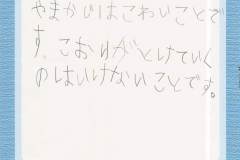 やまかじはこわいことで
す。こおりがとけていく
のはいけないことです。